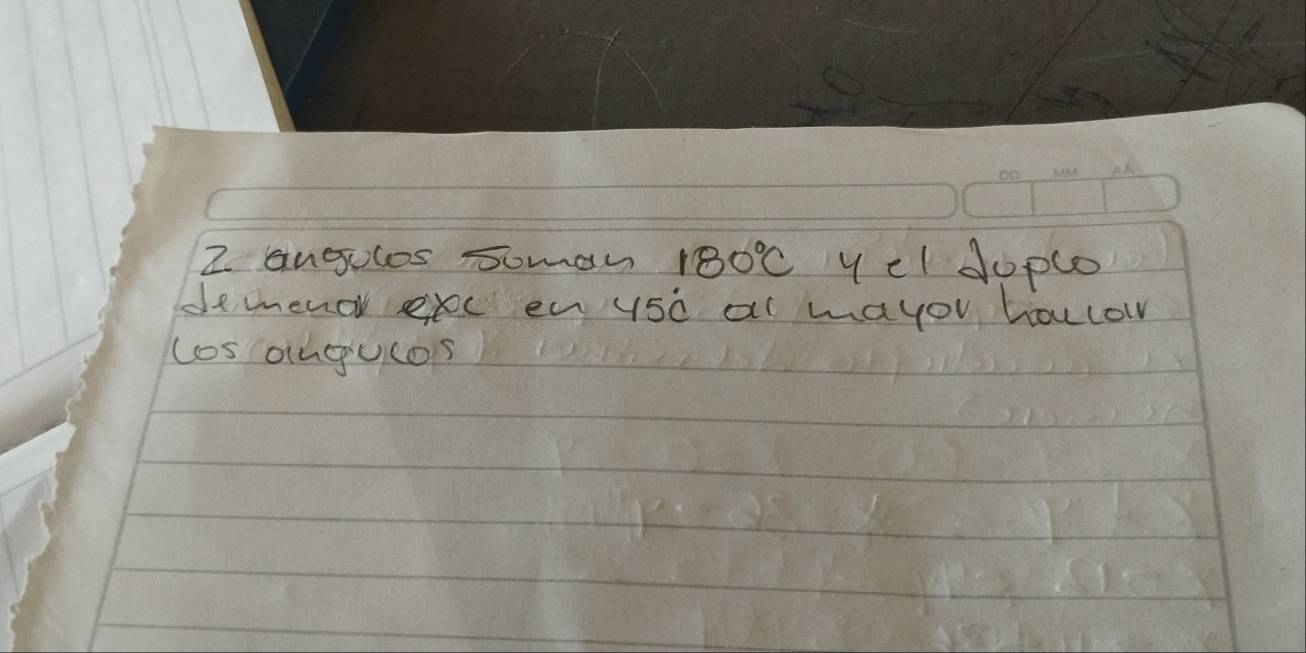 DD MM AA
2 angulos Soman 180°C y el duplo
del menor exc en 45° al mayor hallar
los angulos